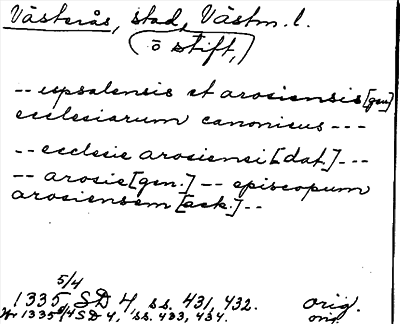 Västerås, stad, Västm. l.
(o stift,)
-- upsalensis et arosiensis [gen]
ecclesiarum canonicus ---
-- ecclesie arosiensi [dat.] ---
-- arosie [gen.] -- episcopum
arosiensem [ack.] --
5/4
1335 SD 4, ss. 431, 432. orig.
1335 5/4 SD 4, ss. 433, 434. orig.